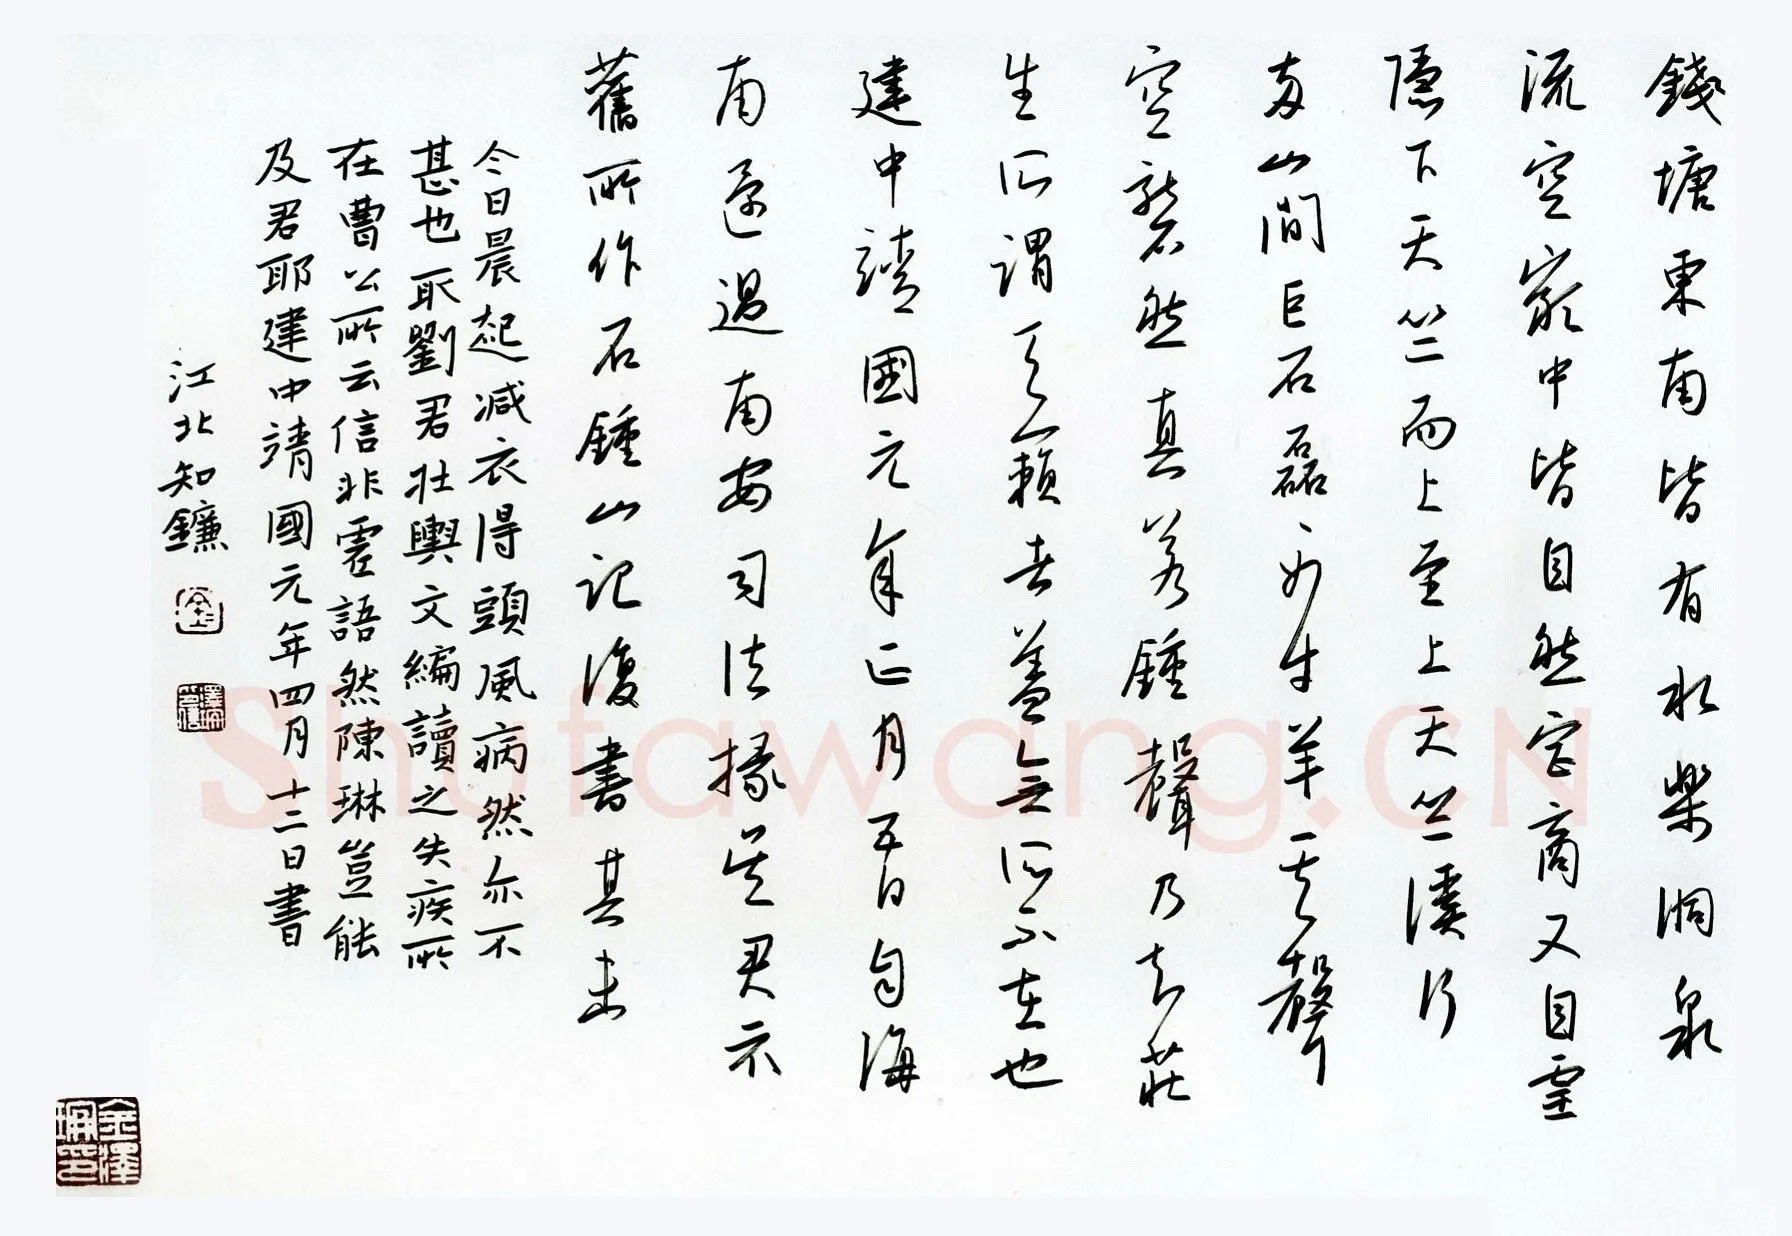 錢塘東南皆有水樂洞泉
流空巖中皆自然宮商又自靈
隱下天竺而上至上天竺溪行
兩山間巨石磊磊如牛羊其聲
空礱然真若鍾聲乃知莊
生所謂天籟者蓋無所不在也
建中靖國元年正月五日自海
南還過南安司法掾吳君示
舊所作石鍾山記復書其末
今日晨起減衣得頭風病然亦不
甚也取劉君壯輿文編讀之失疾所
在曹公所云信非虛語然陳琳豈能
及君耶建中靖國元年四月十二日書
江北知鐮
Shufawang.CN